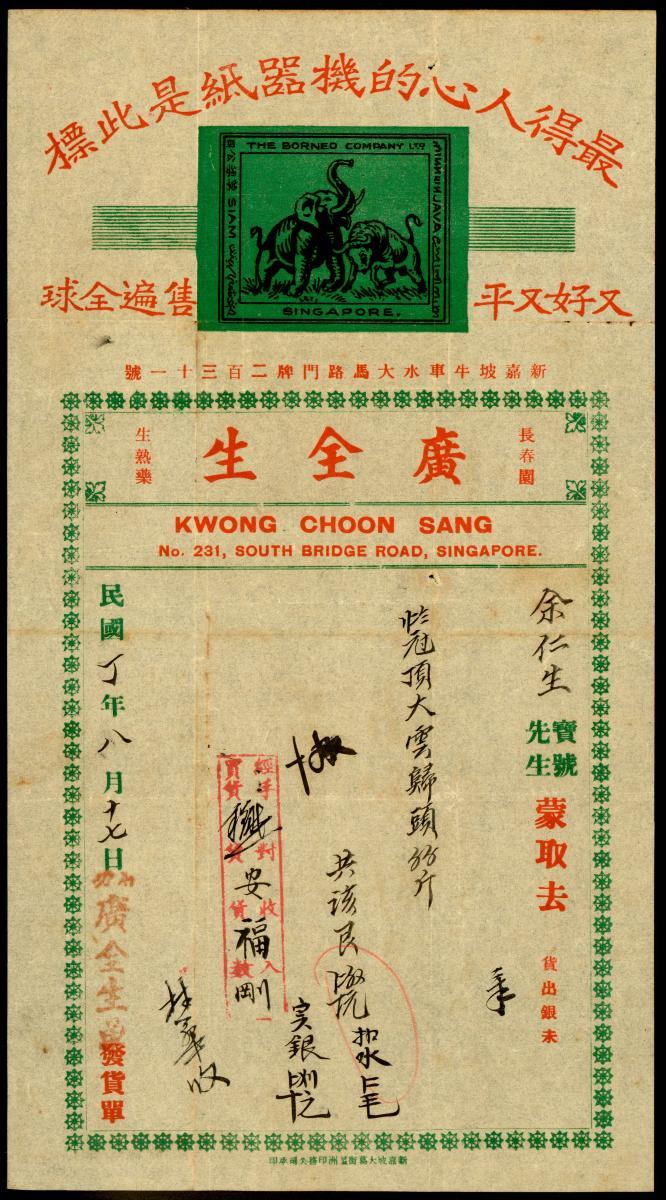 最得人心的機器紙是此標
THE BORNEO COMPANY LTD
SIAM
JAVA
SINGAPORE.
又好又平
售遍全球
新嘉坡牛車水大馬路門牌二百三十一號
長春園
廣全生
生熟藥
KWONG CHOON SANG
No. 231, SOUTH BRIDGE ROAD, SINGAPORE.
余仁生
寶號
先生
蒙取去
貨出銀未
頂大雲歸頭
斤
共該艮
扣水
実銀
經手對收入
買貨貨數
安福
剛
收
民國丁年八月十七日
廣全生
發貨單